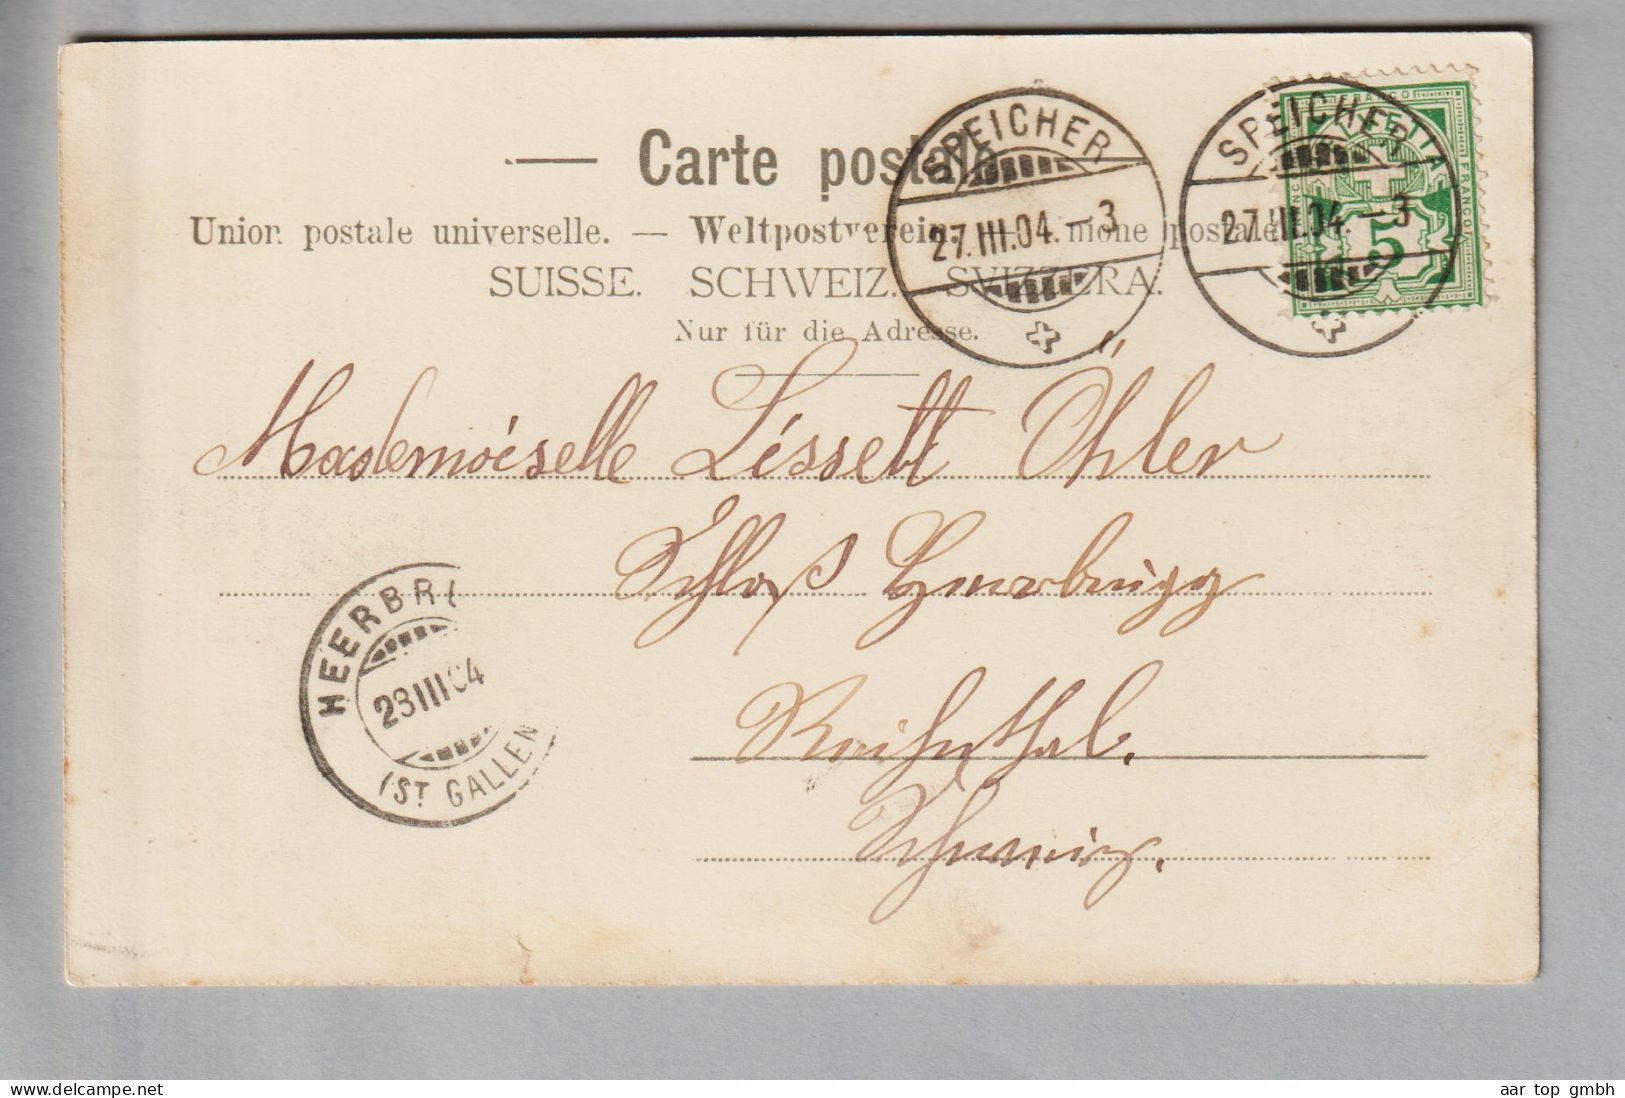 — Carte postale
Union postale universelle. — Weltpostverein. — Unione postale
SUISSE. SCHWEIZ. SVIZZERA.
Nur für die Adresse.
SPEICHER
27.III.04.–3
SPEICHER
27.III.04.–3
FRANCO
HELVETIA
FRANCO
5
Mademoiselle Lissett Öhler
Schloß Heerbrugg
Rheinthal.
Schweiz.
HEERBRU
28 III 04
(ST GALLEN
www.delcampe.net
aar top gmbh